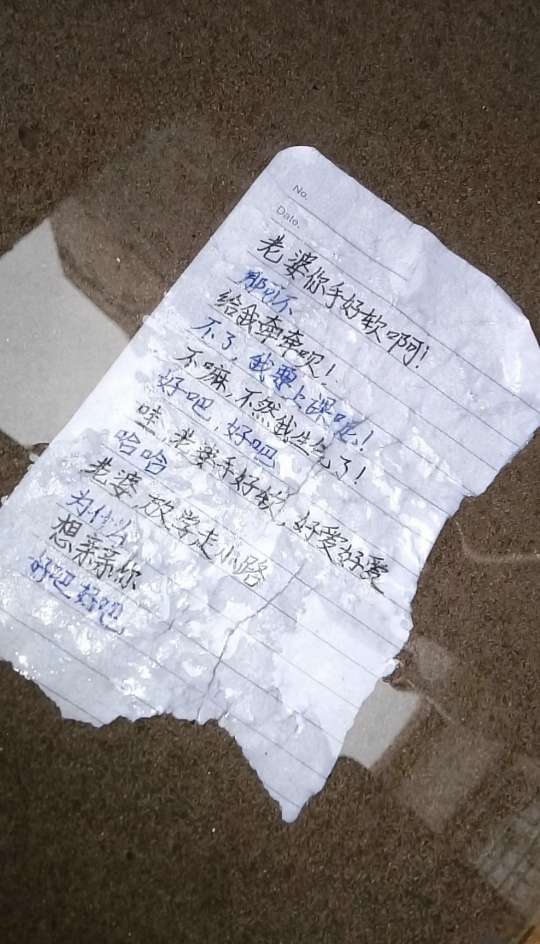 No.
Date.
老婆你手好软啊!
那可不
给我牵牵呗!
不了,我要上课呢!
不嘛,不然我生气了!
好吧,好吧
哇,老婆手好软,好爱好爱
哈哈
老婆,放学走小路
为什么
想亲亲你
好吧好吧